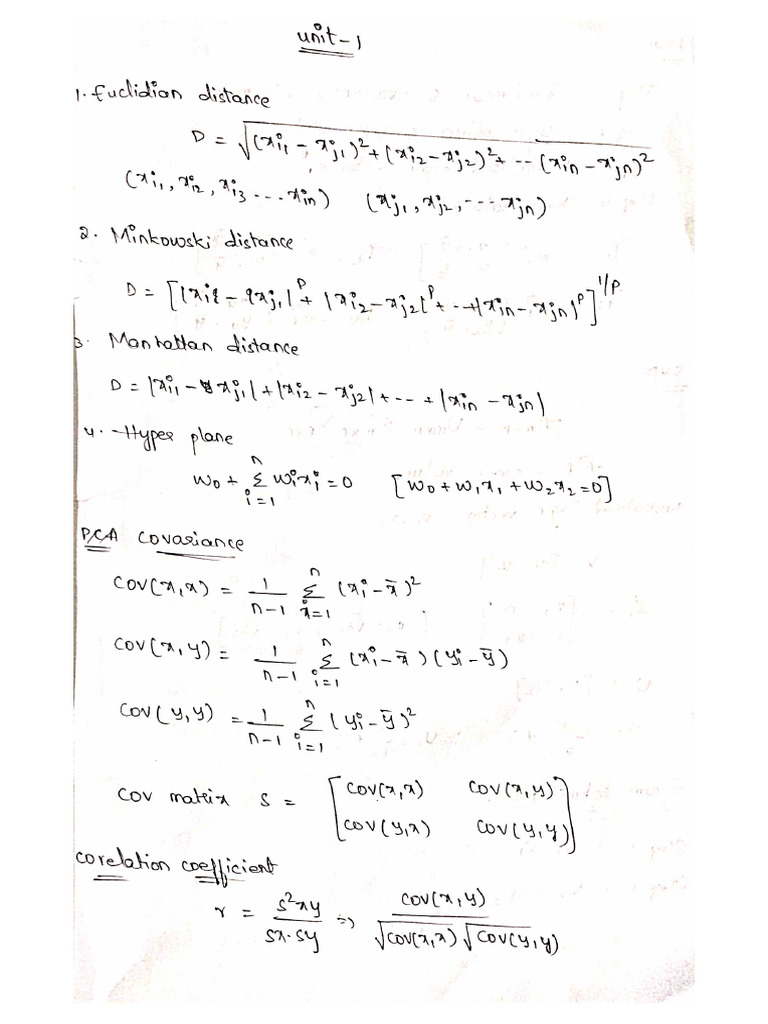 unit-1
1. Euclidian distance
D = √(xi1 - xj1)² + (xi2 - xj2)² + -- (xin - xjn)²
(xi1, xi2, xi3 ... xin) (xj1, xj2, --- xjn)
2. Minkowski distance
D = [|xi1 - xj1|^p + |xi2 - xj2|^p + -- +|xin - xjn|^p]^1/p
3. Manhattan distance
D = |xi1 - xj1| + |xi2 - xj2| + -- + |xin - xjn|
4. Hyper plane
w0 + Σ(i=1 to n) wixi = 0 [w0 + w1x1 + w2x2 = 0]
PCA covariance
COV(x,x) = 1/(n-1) Σ(i=1 to n) (xi - x̄)²
COV(x,y) = 1/(n-1) Σ(i=1 to n) (xi - x̄) (yi - ȳ)
COV(y,y) = 1/(n-1) Σ(i=1 to n) (yi - ȳ)²
COV matrix S = [COV(x,x) COV(x,y)
COV(y,x) COV(y,y)]
Corelation coefficient
r = s²xy / sx·sy => COV(x,y) / √COV(x,x) √COV(y,y)